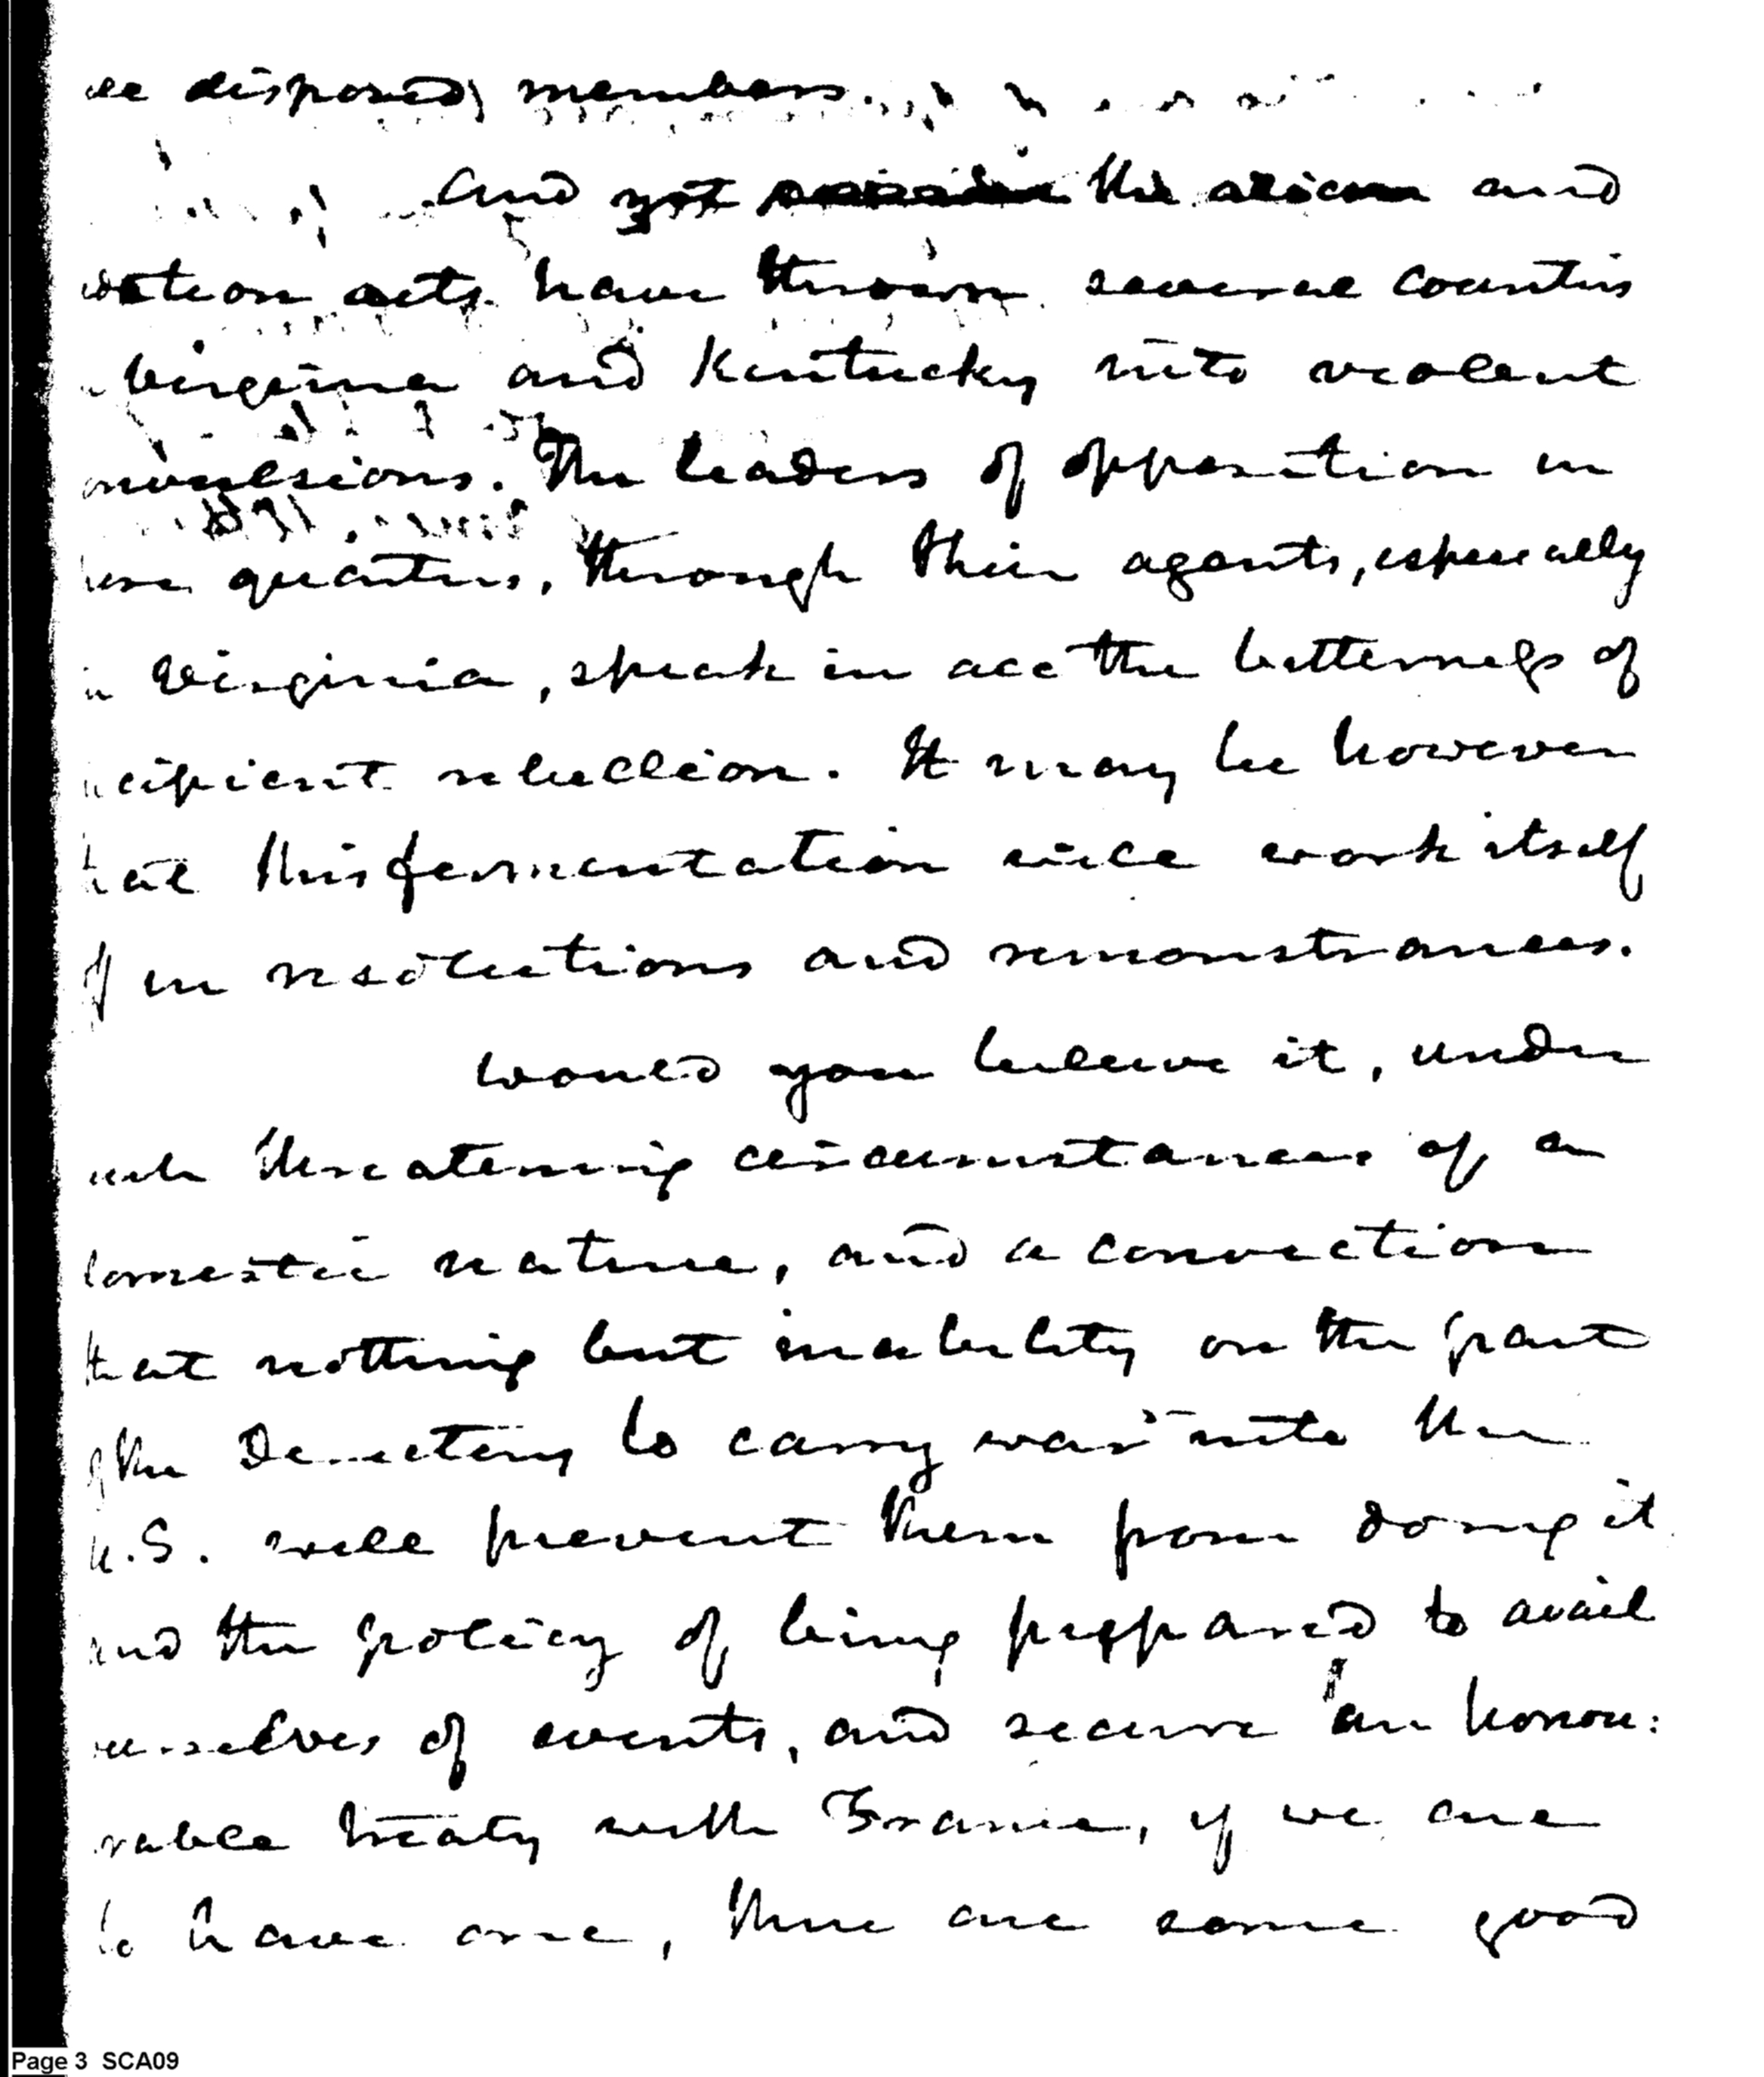 disposed members.
And yet the alien and
acts have thrown several counties
Virginia and Kentucky into violent
onvulsions. The leaders of opposition in
hese quarters, through their agents, especially
in Virginia, speak in all the bitterness of
ncipient rebellion. It may be however
hat this fermentation will work itself
off in resolutions and remonstrances.
Would you believe it, under
such threatening circumstances of a
domestic nature, and a conviction
that nothing but inability on the part
of the Directory to carry war into the
U.S. will prevent them from doing it
and the policy of being prepared to avail
ourselves of events, and secure an honou:
rable treaty with France, if we are
to have one, there are some good
Page 3 SCA09